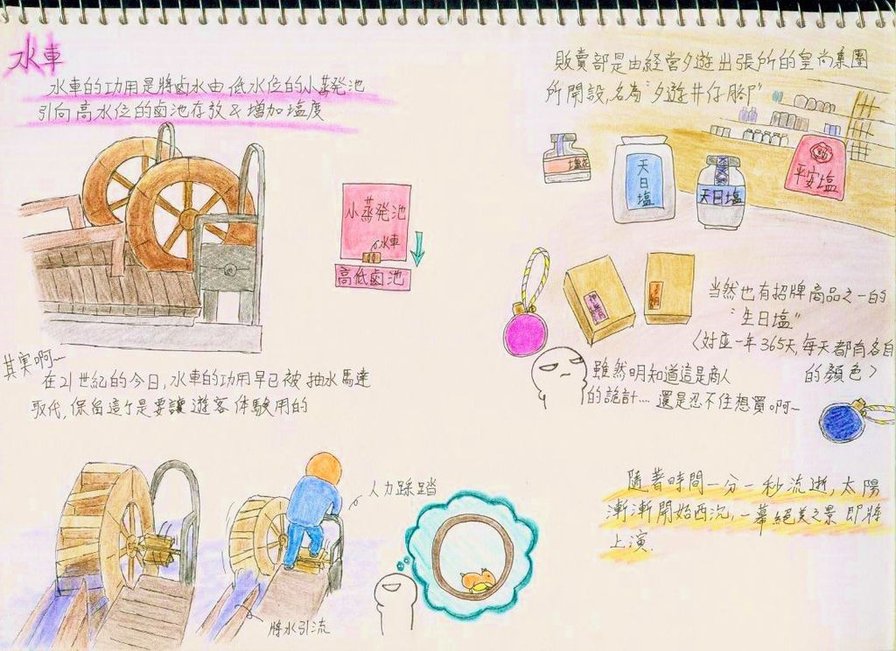 水車
水車的功用是將鹵水由低水位的小蒸発池
引向高水位的鹵池存放&增加塩度
小蒸発池
水車
高低鹵池
其実啊~
在21世紀的今日,水車的功用早已被抽水馬達
取代,保留這个是要讓遊客体験用的
人力踩踏
將水引流
販賣部是由経営夕遊出張所的皇尚集團
所開設,名為"夕遊井仔腳"
天日塩
天日塩
平安塩
当然也有招牌商品之一的
"生日塩"
<対应一年365天,每天都有各自
的顔色>
雖然明知道這是商人
的詭計… 還是忍不住想買啊~
隨著時間一分一秒流逝,太陽
漸漸開始西沉,一幕絕美之景即將
上演.